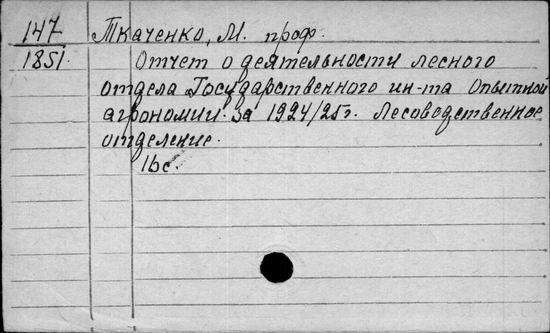 147
1851.
Ткаченко, М. проф.
Отчет о деятельности лесного
отдела Государственного ин-та Опытной
агрономии за 1924/25 г. Лесоводственное
отделение.
16с.